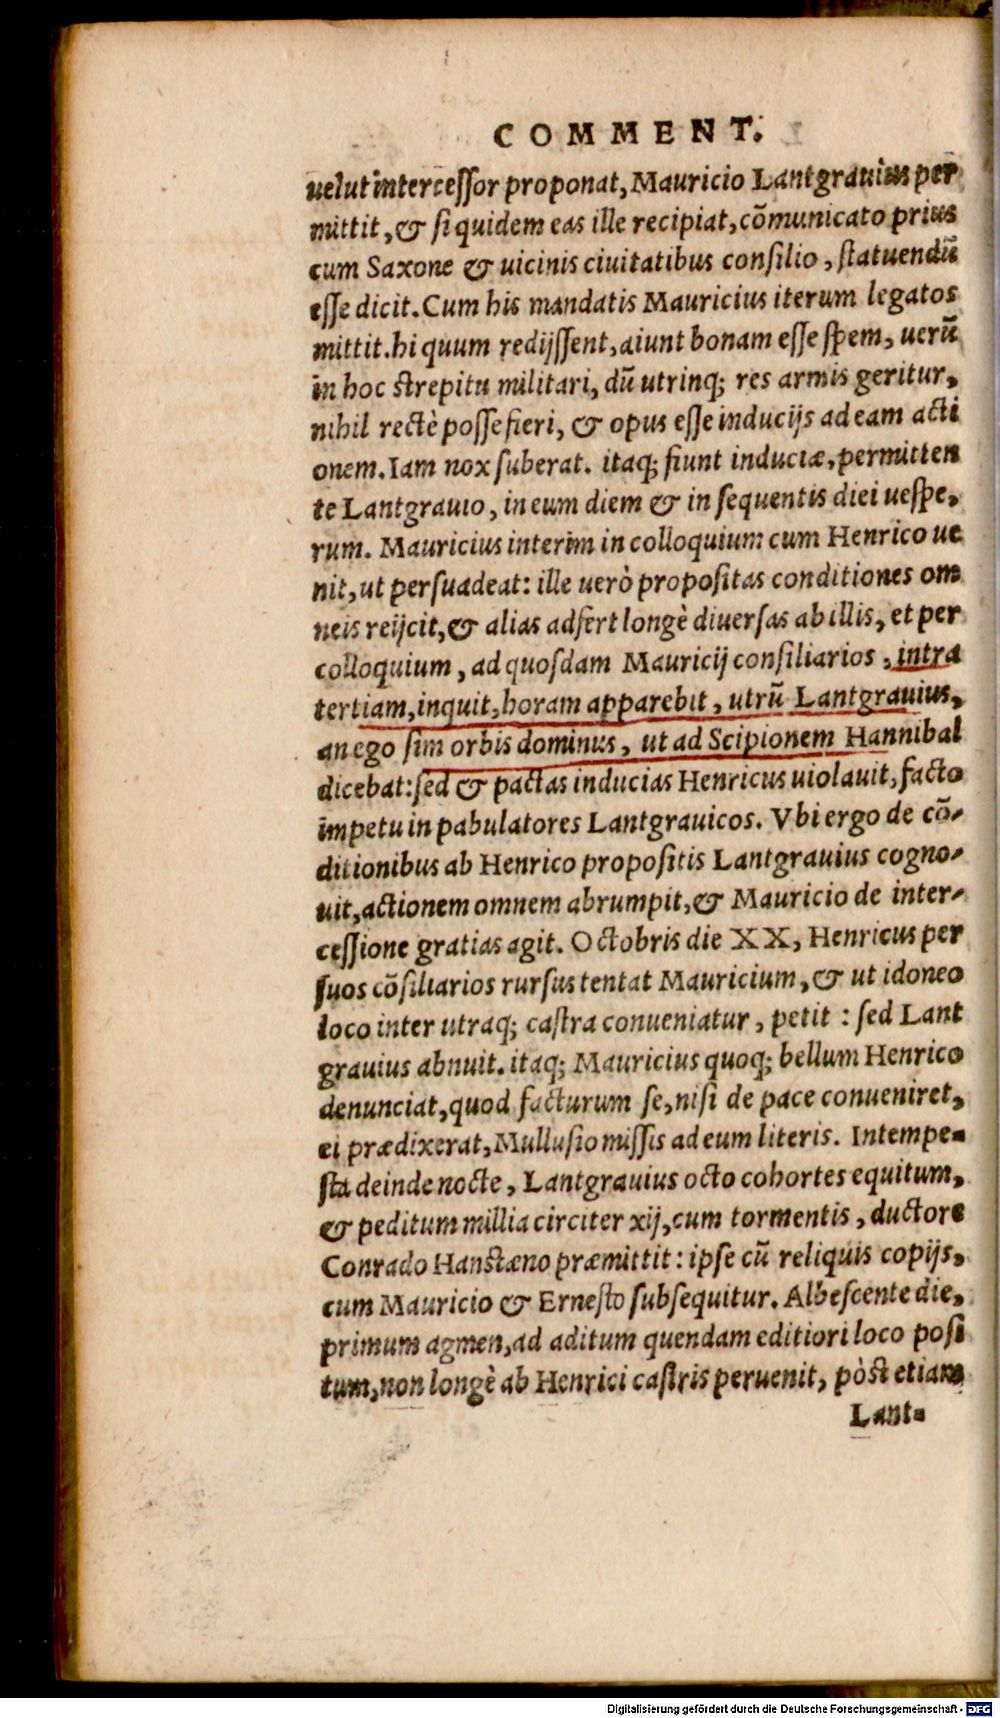 COMMENT.
uelut intercessor proponat, Mauricio Lantgrauius per
mittit, & si quidem eas ille recipiat, cōmunicato prius
cum Saxone & uicinis ciuitatibus consilio, statuendū
esse dicit. Cum his mandatis Mauricius iterum legatos
mittit. hi quum redijssent, aiunt bonam esse spem, uerū
in hoc strepitu militari, dū utrinq; res armis geritur,
nihil rectè posse fieri, & opus esse inducijs ad eam acti
onem. Iam nox suberat. itaq; fiunt induciæ, permitten
te Lantgrauio, in eum diem & in sequentis diei uespe,
rum. Mauricius interim in colloquium cum Henrico ue
nit, ut persuadeat: ille uerò propositas conditiones om
neis reijcit, & alias adfert longè diuersas ab illis, et per
colloquium, ad quosdam Mauricij consiliarios, intra
tertiam, inquit, horam apparebit, utrū Lantgrauius,
an ego sim orbis dominus, ut ad Scipionem Hannibal
dicebat: sed & pactas inducias Henricus uiolauit, facto
impetu in pabulatores Lantgrauicos. Vbi ergo de cō-
ditionibus ab Henrico propositis Lantgrauius cogno-
uit, actionem omnem abrumpit, & Mauricio de inter-
cessione gratias agit. Octobris die XX, Henricus per
suos cōsiliarios rursus tentat Mauricium, & ut idoneo
loco inter utraq; castra conueniatur, petit : sed Lant
grauius abnuit. itaq; Mauricius quoq; bellum Henrico
denunciat, quod facturum se, nisi de pace conueniret,
ei prædixerat, Mullusio missis ad eum literis. Intempe-
sta deinde nocte, Lantgrauius octo cohortes equitum,
& peditum millia circiter xij, cum tormentis, ductore
Conrado Hanstæno præmittit: ipse cū reliquis copijs,
cum Mauricio & Ernesto subsequitur. Albescente die,
primum agmen, ad aditum quendam editiori loco posi
tum, non longè ab Henrici castris peruenit, pòst etiam
Lant-
Digitalisierung gefördert durch die Deutsche Forschungsgemeinschaft - DFG